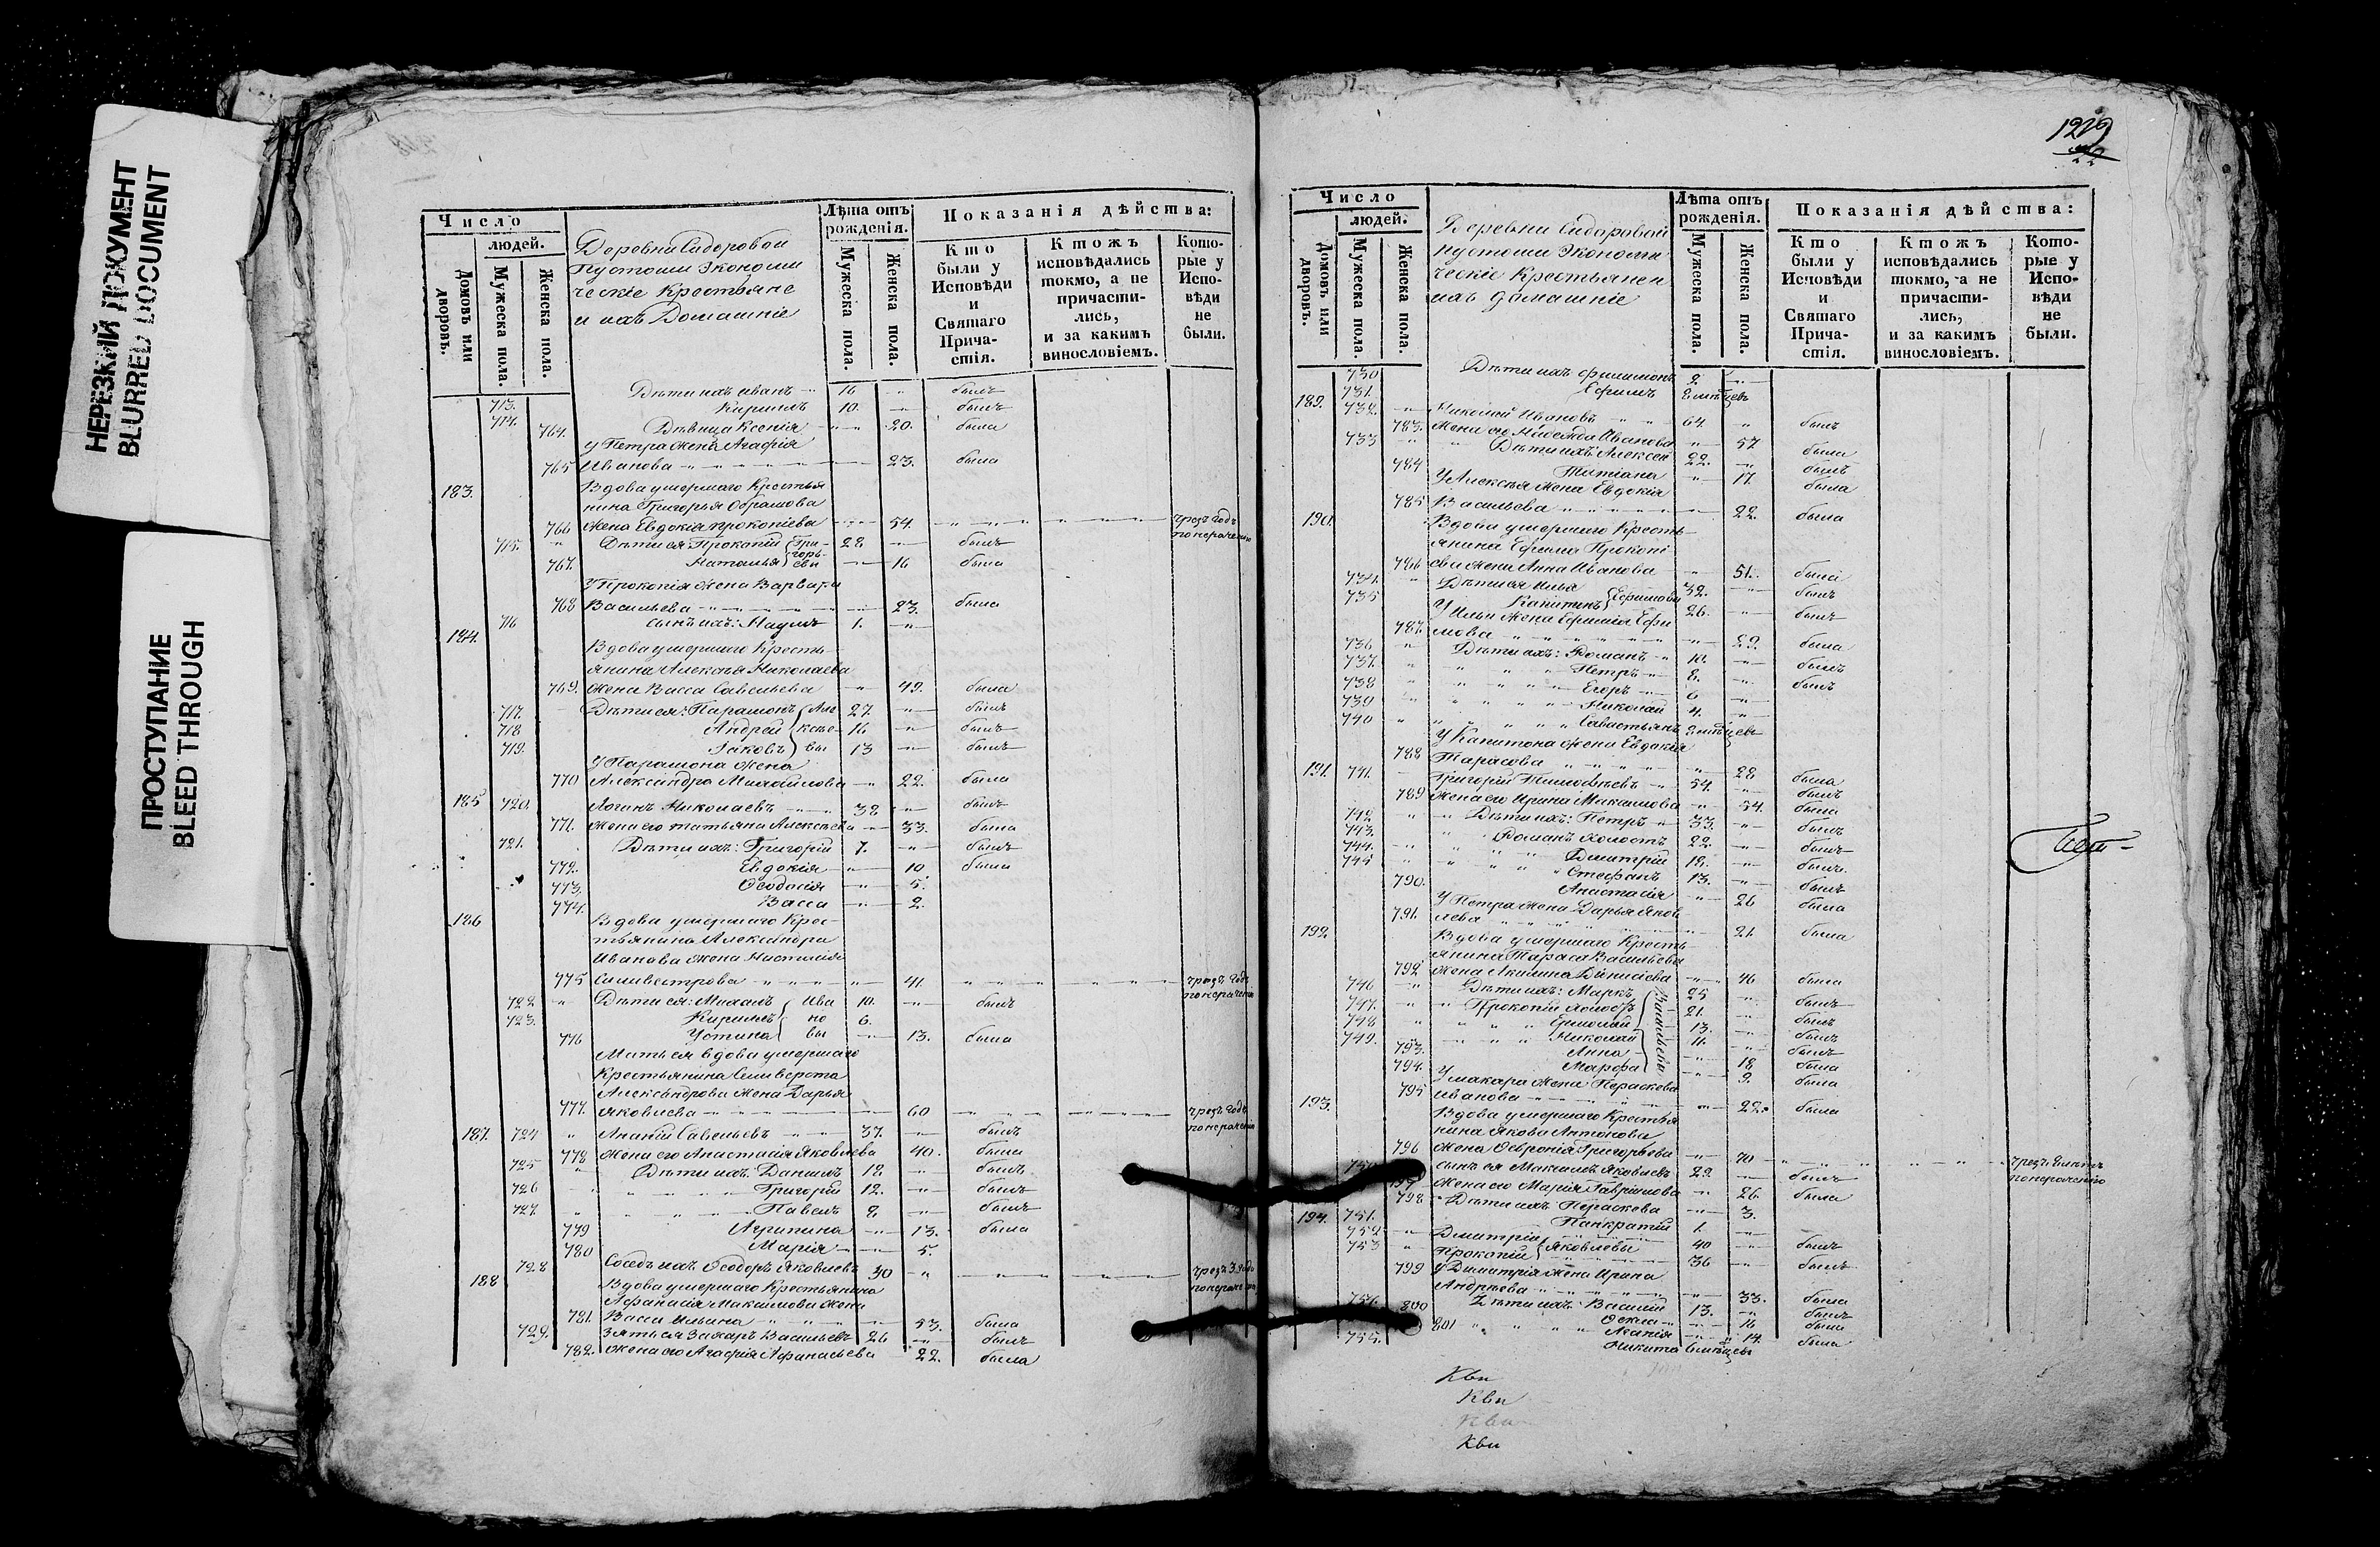 НЕРЕЗКИЙ ДОКУМЕНТ
BLURRED DOCUMENT
ПРОСТУПАНИЕ
BLEED THROUGH
Число
людей.
Домовъ или дворовъ.
Мужеска пола.
Женска пола.
Деревни Сидоровой
Пустоши Экономи
ческіе Крестьяне
и ихъ Домашніе
Лѣта отъ рожденія.
Мужеска пола.
Женска пола.
Показанія дѣйства:
Кто были у Исповѣди и Святаго Причастія.
Ктожъ исповѣдались токмо, а не причастились, и за какимъ винословіемъ.
Которые у Исповѣди не были.
713. Дѣти ихъ иванъ 16 былъ
714. Кирилъ 10. былъ
764. Дѣвица Ксенія 20. была
у Петра жена Агафія
765 Иванова 23. была
183. Вдова умершаго Крестья
нина Григорья Абрамова
766 жена Евдокія прокопіева 54. чрезъ годъ
по нерачению
715. Дѣти ея Прокопій Гри- 28 былъ
767. Наталья горь- еви 16 была
У Прокопія жена Варвара
768 Васильева 23. была
716 сынъ ихъ: Наумъ 1.
184. Вдова умершаго Кресть
янина Алексѣя Николаева
769. жена Васса Савельева 49. была
717. Дѣти ея: Парамонъ Але 27 былъ
718 Андрей ксѣе- 16 былъ
719. Іаковъ вы 13 былъ
У Парамона жена
770 Александра Михайлова 22. была
185 720. Логинъ Николаевъ 38 былъ
771. жена его татьяна Алексѣева 33. была
721. Дѣти ихъ: Григорій 7. былъ
772. Евдокія 10 была
773. Ѳеодосія 5.
774. Васса 2.
186 Вдова умершаго Крес-
тьянина Александра
Иванова жена Настасія
775 Силивестрова 41. чрезъ годъ
по нерачению
722 Дѣти ея: Михаилъ Ива 10. былъ
723. Кирилъ но 6.
776 Устина вы 13. была
Мать ея вдова умершаго
Крестьянина Селиверста
Александрова жена Дарья
777. Яковлева 60 чрезъ годъ
по нерачению
187. 724 Ананій Савельевъ 37. былъ
778 жена его Анастасія Яковлева 40. была
725 Дѣти ихъ: Данилъ 18. былъ
726 Григорій 12. былъ
727. Павелъ 8. былъ
779 Агрипина 13. была
780 Марія 5.
728 Соседъ ихъ Ѳеодоръ Яковлевъ 30 чрезъ 3 года
по нерачению
188 Вдова умершаго Крестьянина
Афанасія Максимова жена
781. Васса Ильина 53. была
729. Зять ея Захаръ Васильевъ 26 былъ
782. жена его Агафія Афанасьева 22. была
1219
22
Число
людей.
Домовъ или дворовъ.
Мужеска пола.
Женска пола.
Деревни Сидоровой
пустоши Экономи
ческіе Крестьяне и
ихъ домашніе
Лѣта отъ рожденія.
Мужеска пола.
Женска пола.
Показанія дѣйства:
Кто были у Исповѣди и Святаго Причастія.
Ктожъ исповѣдались токмо, а не причастились, и за какимъ винословіемъ.
Которые у Исповѣди не были.
730 Дѣти ихъ филимонъ 2.
731. Ефимъ 2 мѣсяцевъ
189. 732. Николай Ивановъ 64. былъ
783. жена его Надежда Иванова 57. была
733 Дѣти ихъ: Алексей 22. былъ
784 Татіана 17. была
У Алексѣя жена Евдокія
785 Васильева 22. была
190. Вдова умершаго Кресть
янина Ефима Прокопі
786 ева жена Анна Иванова 51. была
734. Дѣти ея Илья 32. былъ
735 Капитонъ Ефимовы 26. былъ
У Ильи жена Ефимія Ефи
787. мова 29. была
736 Дѣти ихъ: Романъ 10. былъ
737. Петръ 8. былъ
738 Егоръ 6
739 Николай 4.
740 Савастьянъ 2 мѣсяцевъ
У Капитона жена Евдокія
788 Тарасова 28 была
191. 741. Григорій Тимофѣевъ 54. былъ
789 жена его Ирина Максимова 54. была
742 Дѣти ихъ: Петръ 33. былъ
743. Романъ холостъ 22. былъ
744. Дмитрій 18. былъ
745 Стефанъ 13. былъ
790. Анастасія 26 была
У Петра жена Дарья Яков
791. лева 21. была
192. Вдова умершаго Кресть
янина Тараса Васильева
792 жена Акилина 46 была
746 Дѣти ихъ: Маркъ 25 былъ
747. Прокопій холостъ 21. былъ
748 Ермолай 13. былъ
749. Николай 11. былъ
793. Анна 18 была
794. Марфа 9. была
У макара жена Параскева
795 Иванова 22. была
193. Вдова умершаго Крестья
нина Якова Антонова
796 жена Ѳевронія Григорьева 70 чрезъ
по нерачению
750 сынъ ея Максимъ Яковлевъ 29. былъ
797 жена его Марія Гаврилова 26. была
798 Дѣти ихъ Параскева 3.
751. Панкратій 1.
194. 752 Дмитрій 40 былъ
753 Прокопій Яковлевы 36 былъ
799 У Димитрія жена Ирина
Андрѣева 33. была
754. Дѣти ихъ: Василій 13. былъ
800 Ѳекла 16 была
801 14. была
755. Никита 6 мѣсяцевъ
Кви
Кви
Кви
Кви